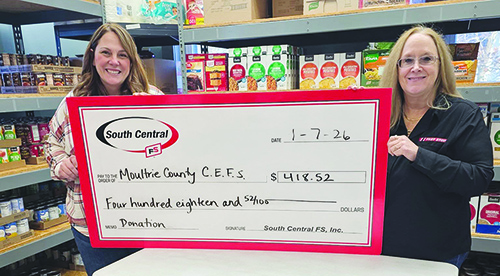 South Central
FS
DATE 1-7-26
PAY TO THE
ORDER OF Moultrie County C.E.F.S. $ 418.52
Four hundred eighteen and 52/100 DOLLARS
MEMO Donation SIGNATURE South Central FS, Inc.